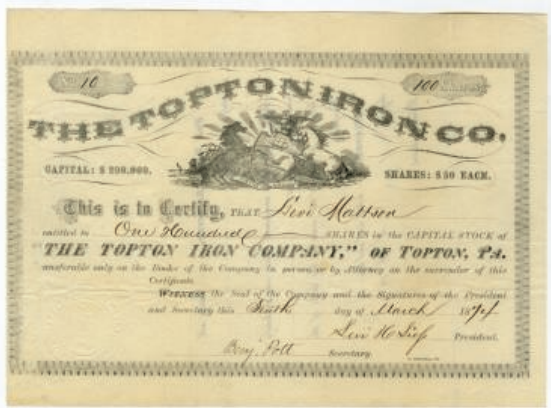 10
100
THE TOPTON IRON CO.
CAPITAL: $ 200,000.
SHARES: $ 50 EACH.
This is to Certify, THAT Levi Mattson
entitled to One Hundred SHARES in the CAPITAL STOCK of
"THE TOPTON IRON COMPANY," OF TOPTON, PA.
transferable only on the Books of the Company in person or by Attorney on the surrender of this
Certificate.
WITNESS the Seal of the Company and the Signatures of the President
and Secretary this Tenth day of March 1874
Levi H President.
Benj. Pott Secretary.